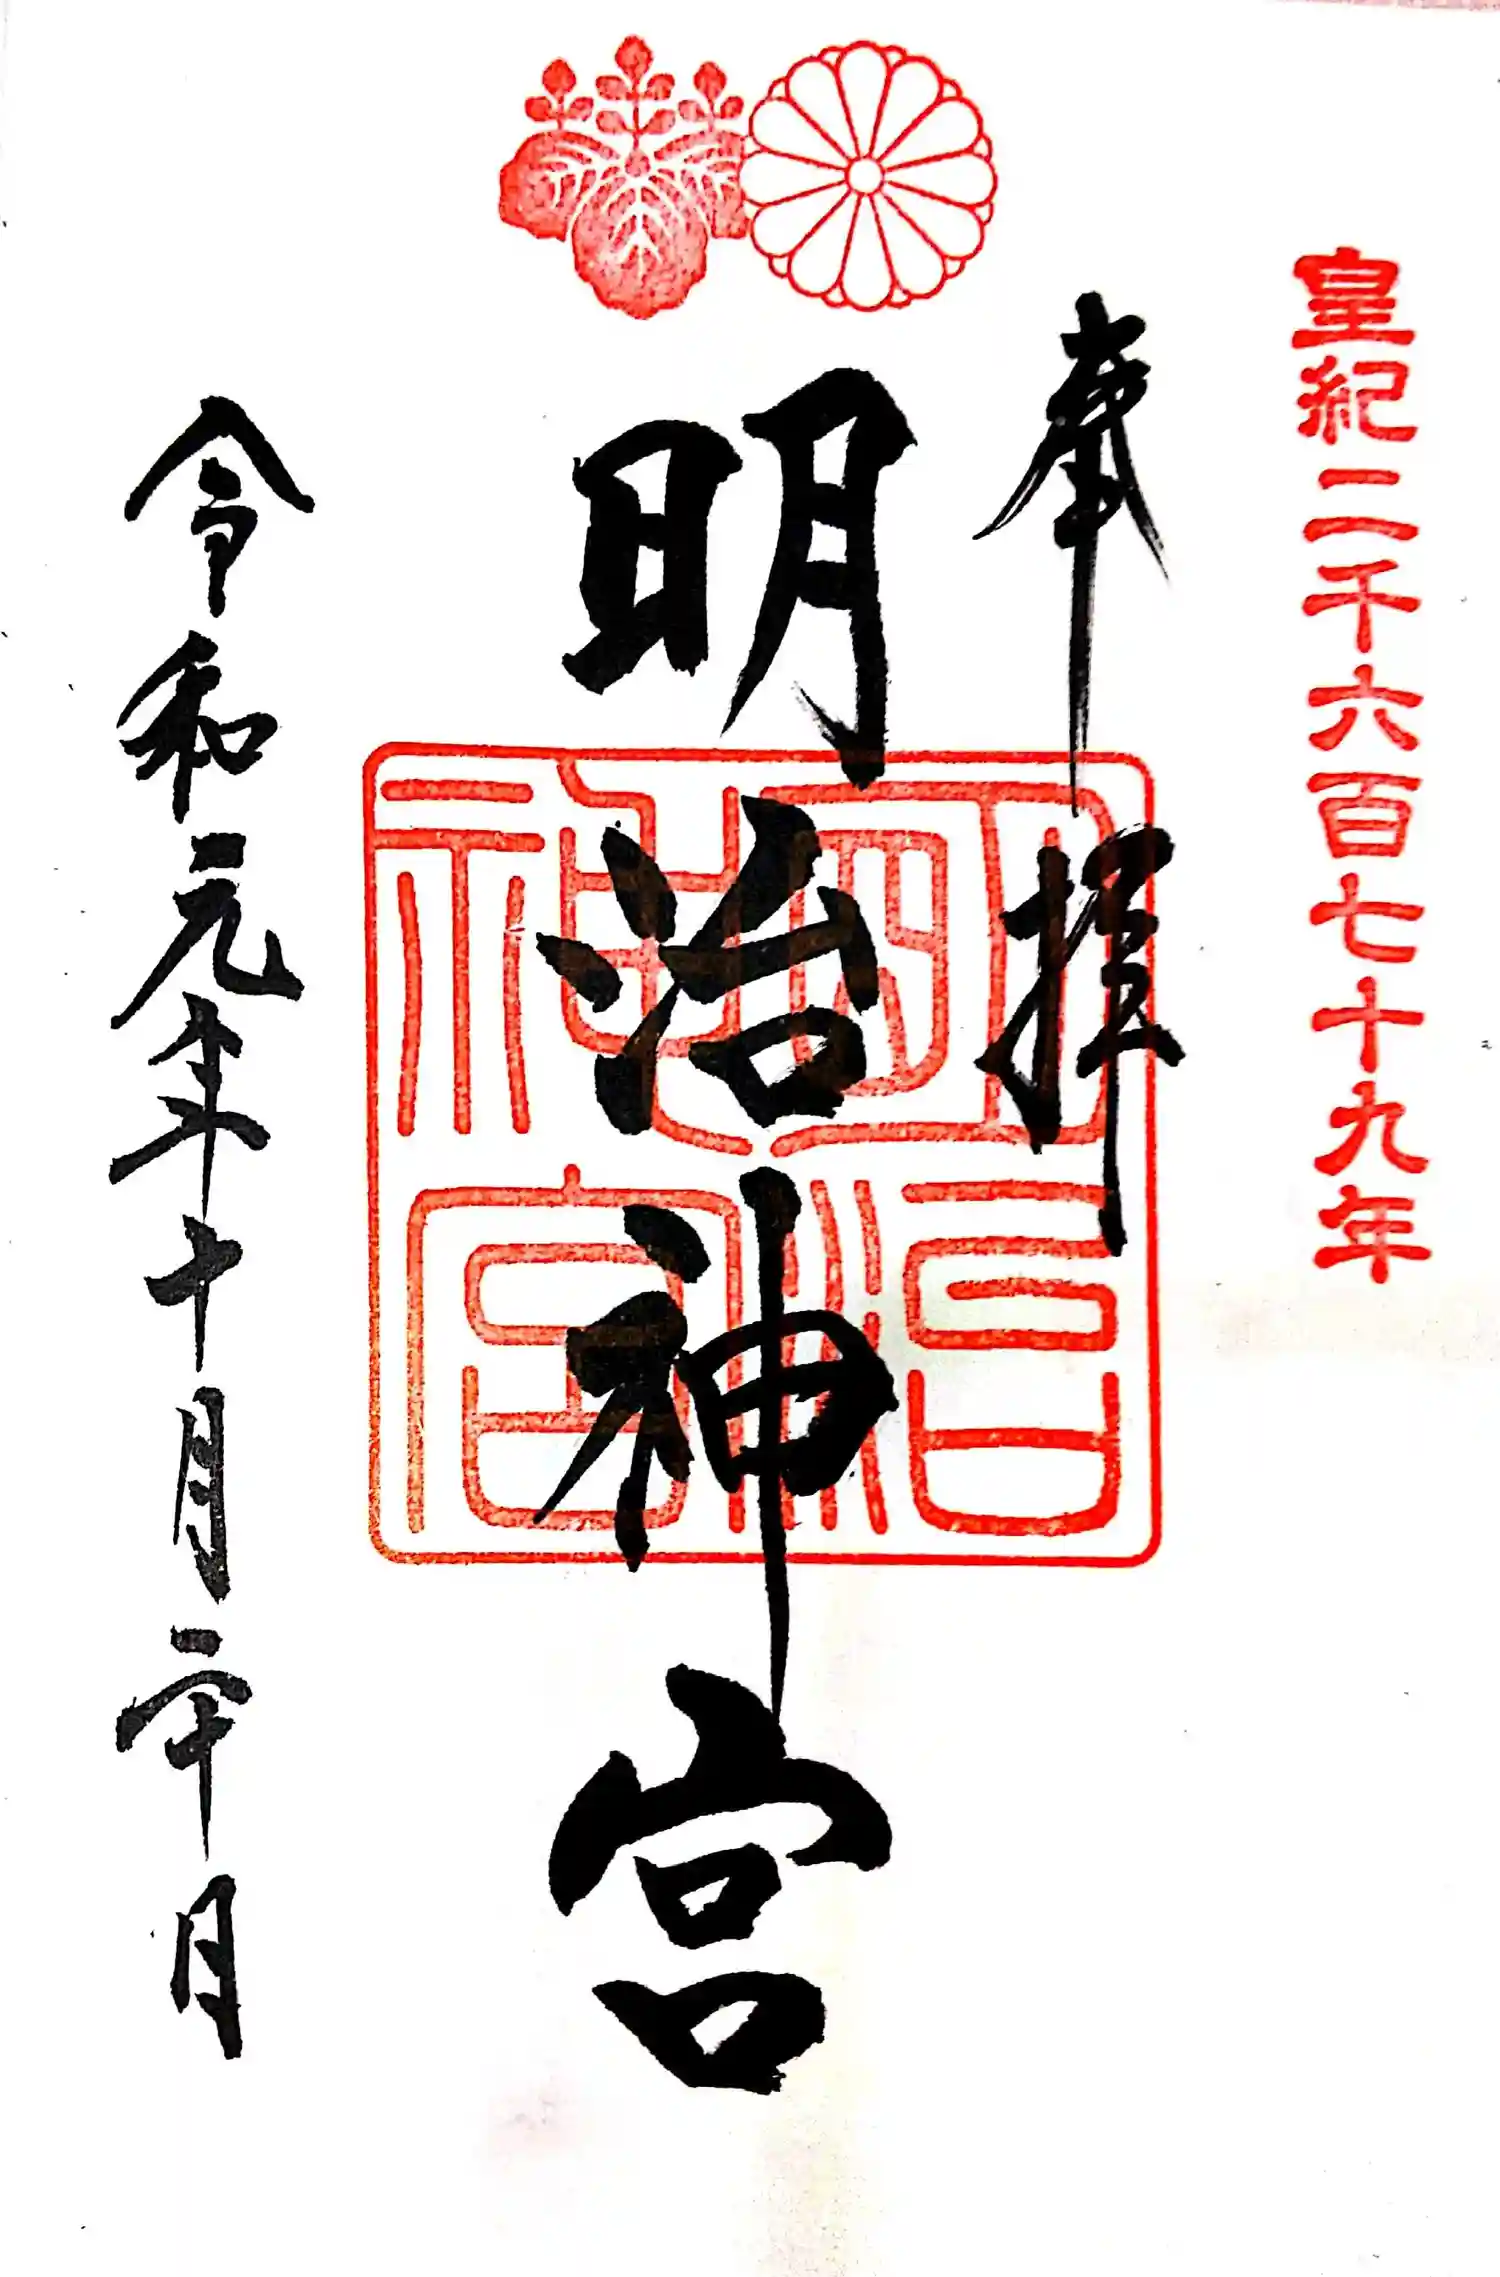 皇紀二千六百七十九年
奉拝
明治神宮
明治神宮
令和元年十月二十日